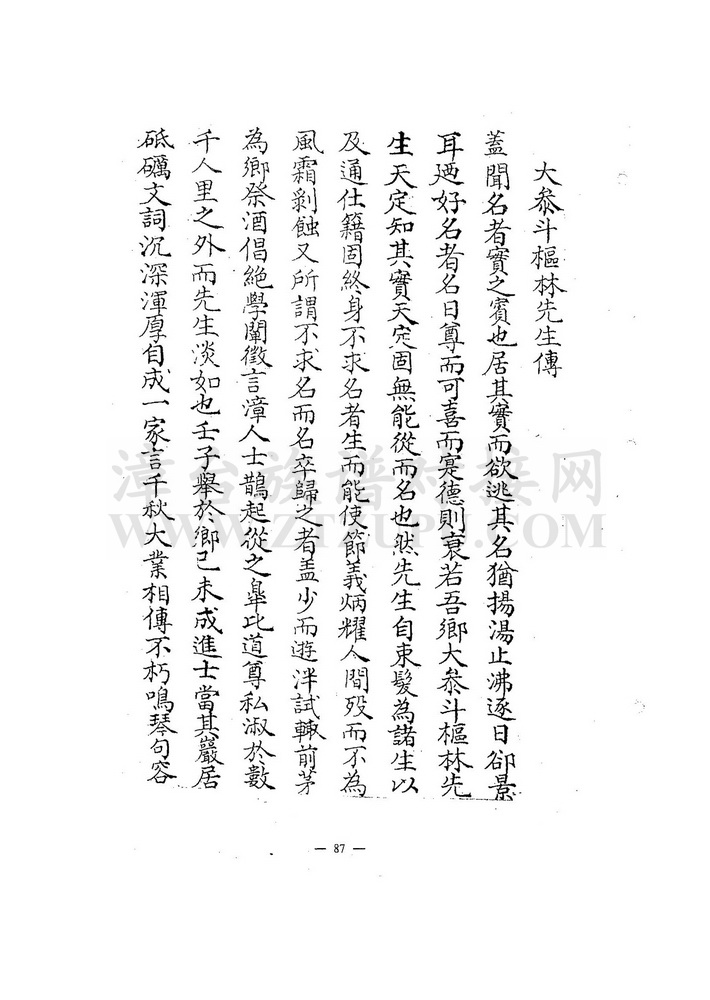 大叅斗樞林先生傳
葢聞名者實之賓也居其實而欲逃其名猶揚湯止沸逐日卻景
耳廼好名者名日尊而可喜而寔德則衰若吾鄉大叅斗樞林先
生天定知其實天定固無能從而名也然先生自束髮為諸生以
及通仕籍固終身不求名者生而能使節義炳耀人間歿而不為
風霜剝蝕又所謂不求名而名卒歸之者盖少而遊泮試輙前茅
為鄉祭酒倡絶學闡徵言漳人士鵲起從之臯比道尊私淑於數
千人里之外而先生淡如也壬子舉於鄉己未成進士當其巖居
砥礪文詞沉深渾厚自成一家言千秋大業相傳不朽鳴琴句容
漳台族谱对接网
WWW.ZTZUPU.COM
— 87 —